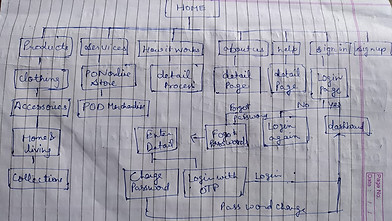 HOME
Products
Services
How it works
about us
help
sign in
sign up
Clothing
POD online
Store
detail
Process
detail
Page
detail
Page
Login
Page
Accessories
POD Merchandise
forgot
Password
No
Yes
Home &
living
Enter
Detail
Forgot
Password
Login
again
dashboard
Collections
Change
Password
Login with
OTP
Login
Password change
Page No.
Date